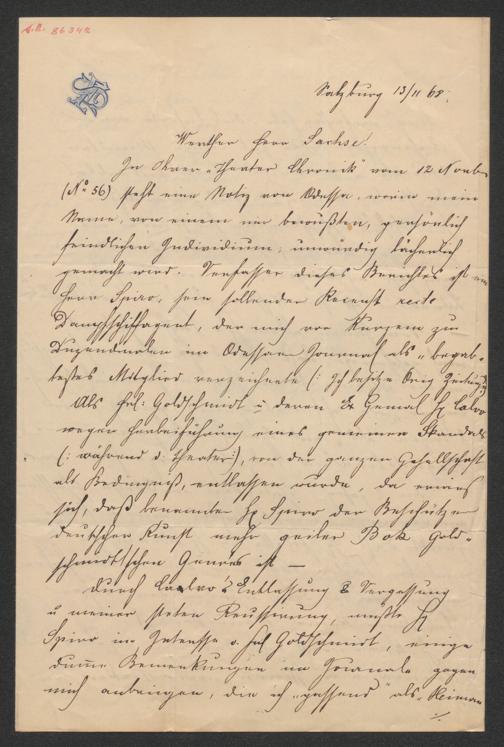 A.N. 86342
Salzburg 13/11 68.
Werther Herr Sachse!
In Ihrer "Theater Chronik" vom 12 Novb
(No 56) steht eine Notiz von Odessa, worin mein
Name, von einem mir bewußten, persönlich
feindlichen Individium, unwürdig lächerlich
gemacht wird. Verfasser dieses Berichtes ist ein
Herr Spiro, sein sollender Recensent recte
Dampfschiffagent, der mich vor Kurzem zu
Duzendmalen im Odessaer Journal als "begab-
testes Mitglied verzeichnete (: Ich besitze Orig Zeitung :)
Als Frl: Goldschmidt u deren Ex Gemal H Calvo
wegen Herbeiführung eines gemeinen Skandals
(: während d: Theater :), von der ganzen Gesellschaft
als Bedingniß, entlassen wurde, da erwies
sich, daß benannter H Spiro der Beschützer
deutscher Kunst mehr geiler Bok Gold-
schmidt'schen Genres ist —
Durch Calvo's Entlassung & Vergessung
u meiner steten Reussirung, mußte H
Spiro im Interesse d. Frl Goldschmidt, einige
dumme Bemerkungen im Journale gegen
mich anbringen, die ich "passend" als